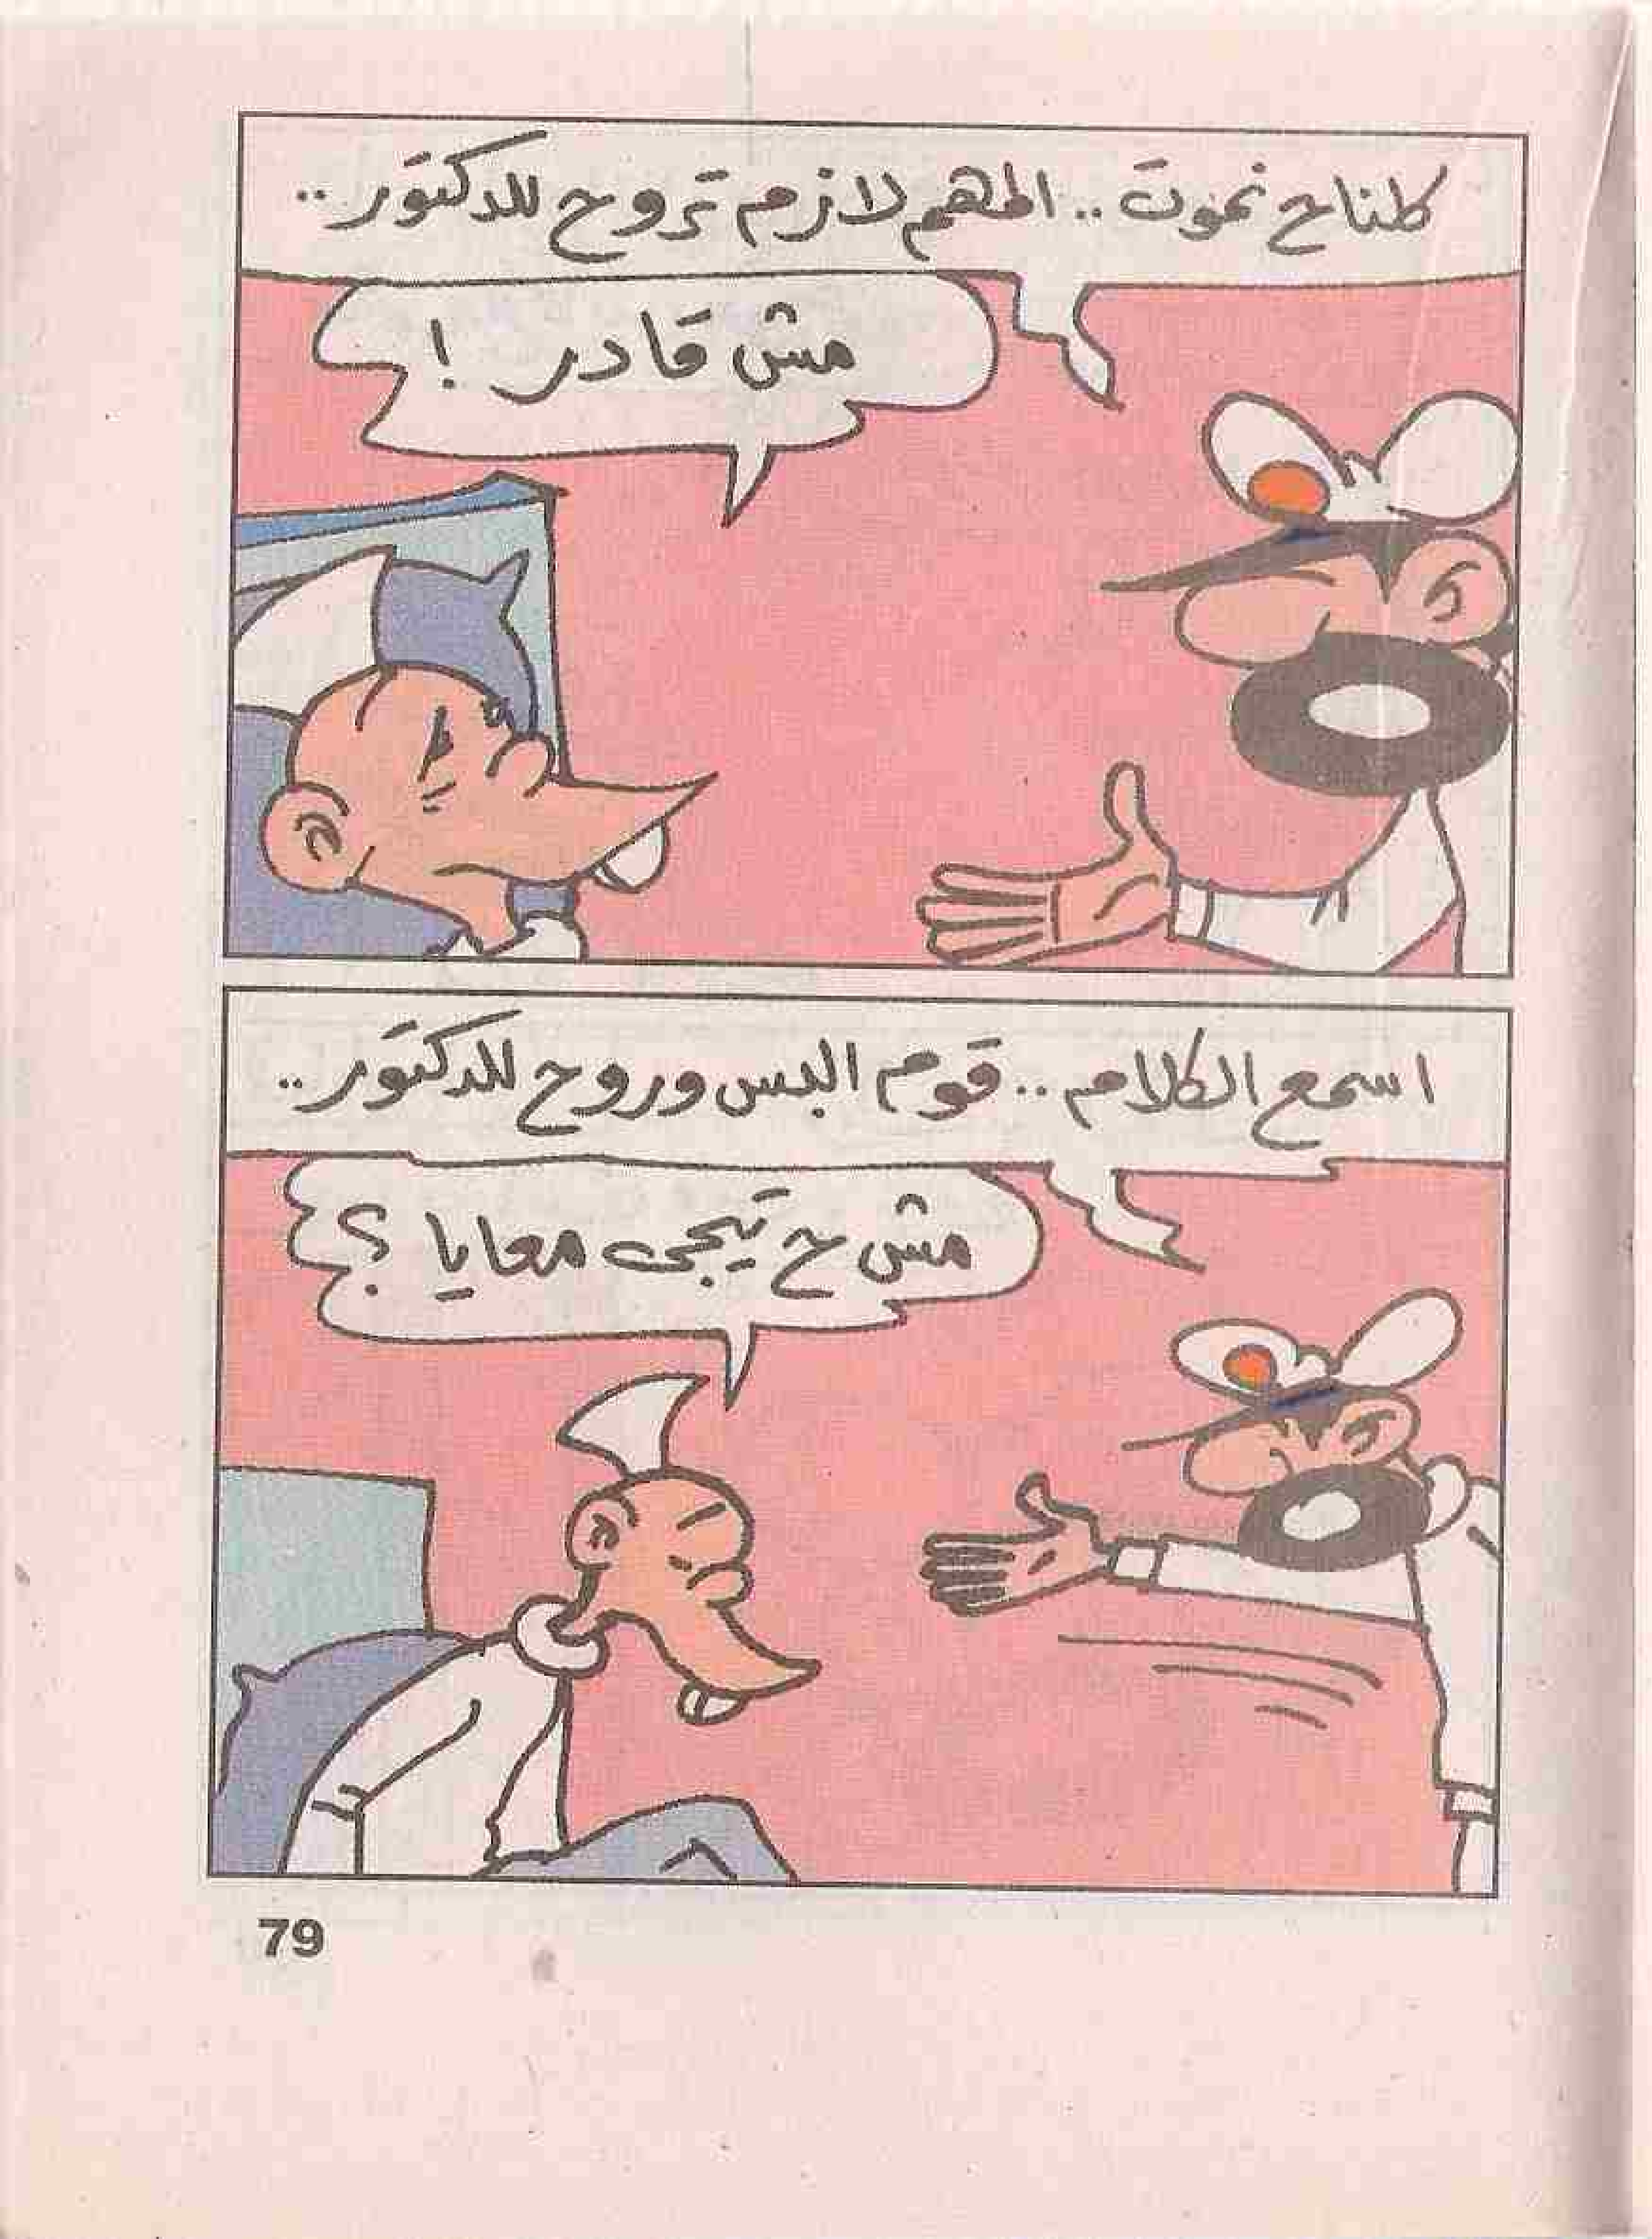 كلنا ح نموت .. المهم لازم تروح للدكتور ..
مش قادر !
اسمع الكلام .. قوم البس وروح للدكتور ..
مش ح تيجى معايا ؟
79